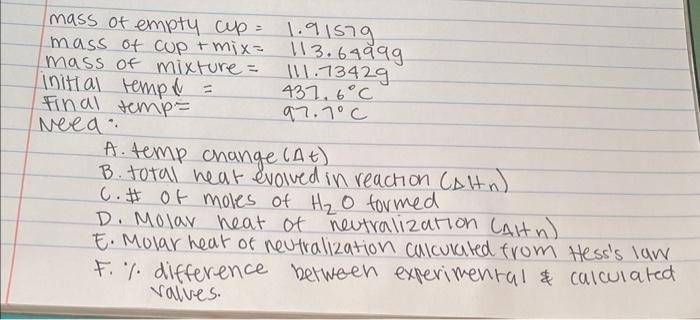 mass of empty cup = 1.9157g
mass of cup + mix = 113.6499g
mass of mixture = 111.7342g
initial temp = 437.6°C
Final temp = 97.7°C
Need:
A. temp change (Δt)
B. total heat evolved in reaction (ΔHn)
C. # of moles of H₂O formed
D. Molar heat of neutralization (ΔHn)
E. Molar heat of neutralization calculated from Hess's law
F. % difference between experimental & calculated
values.